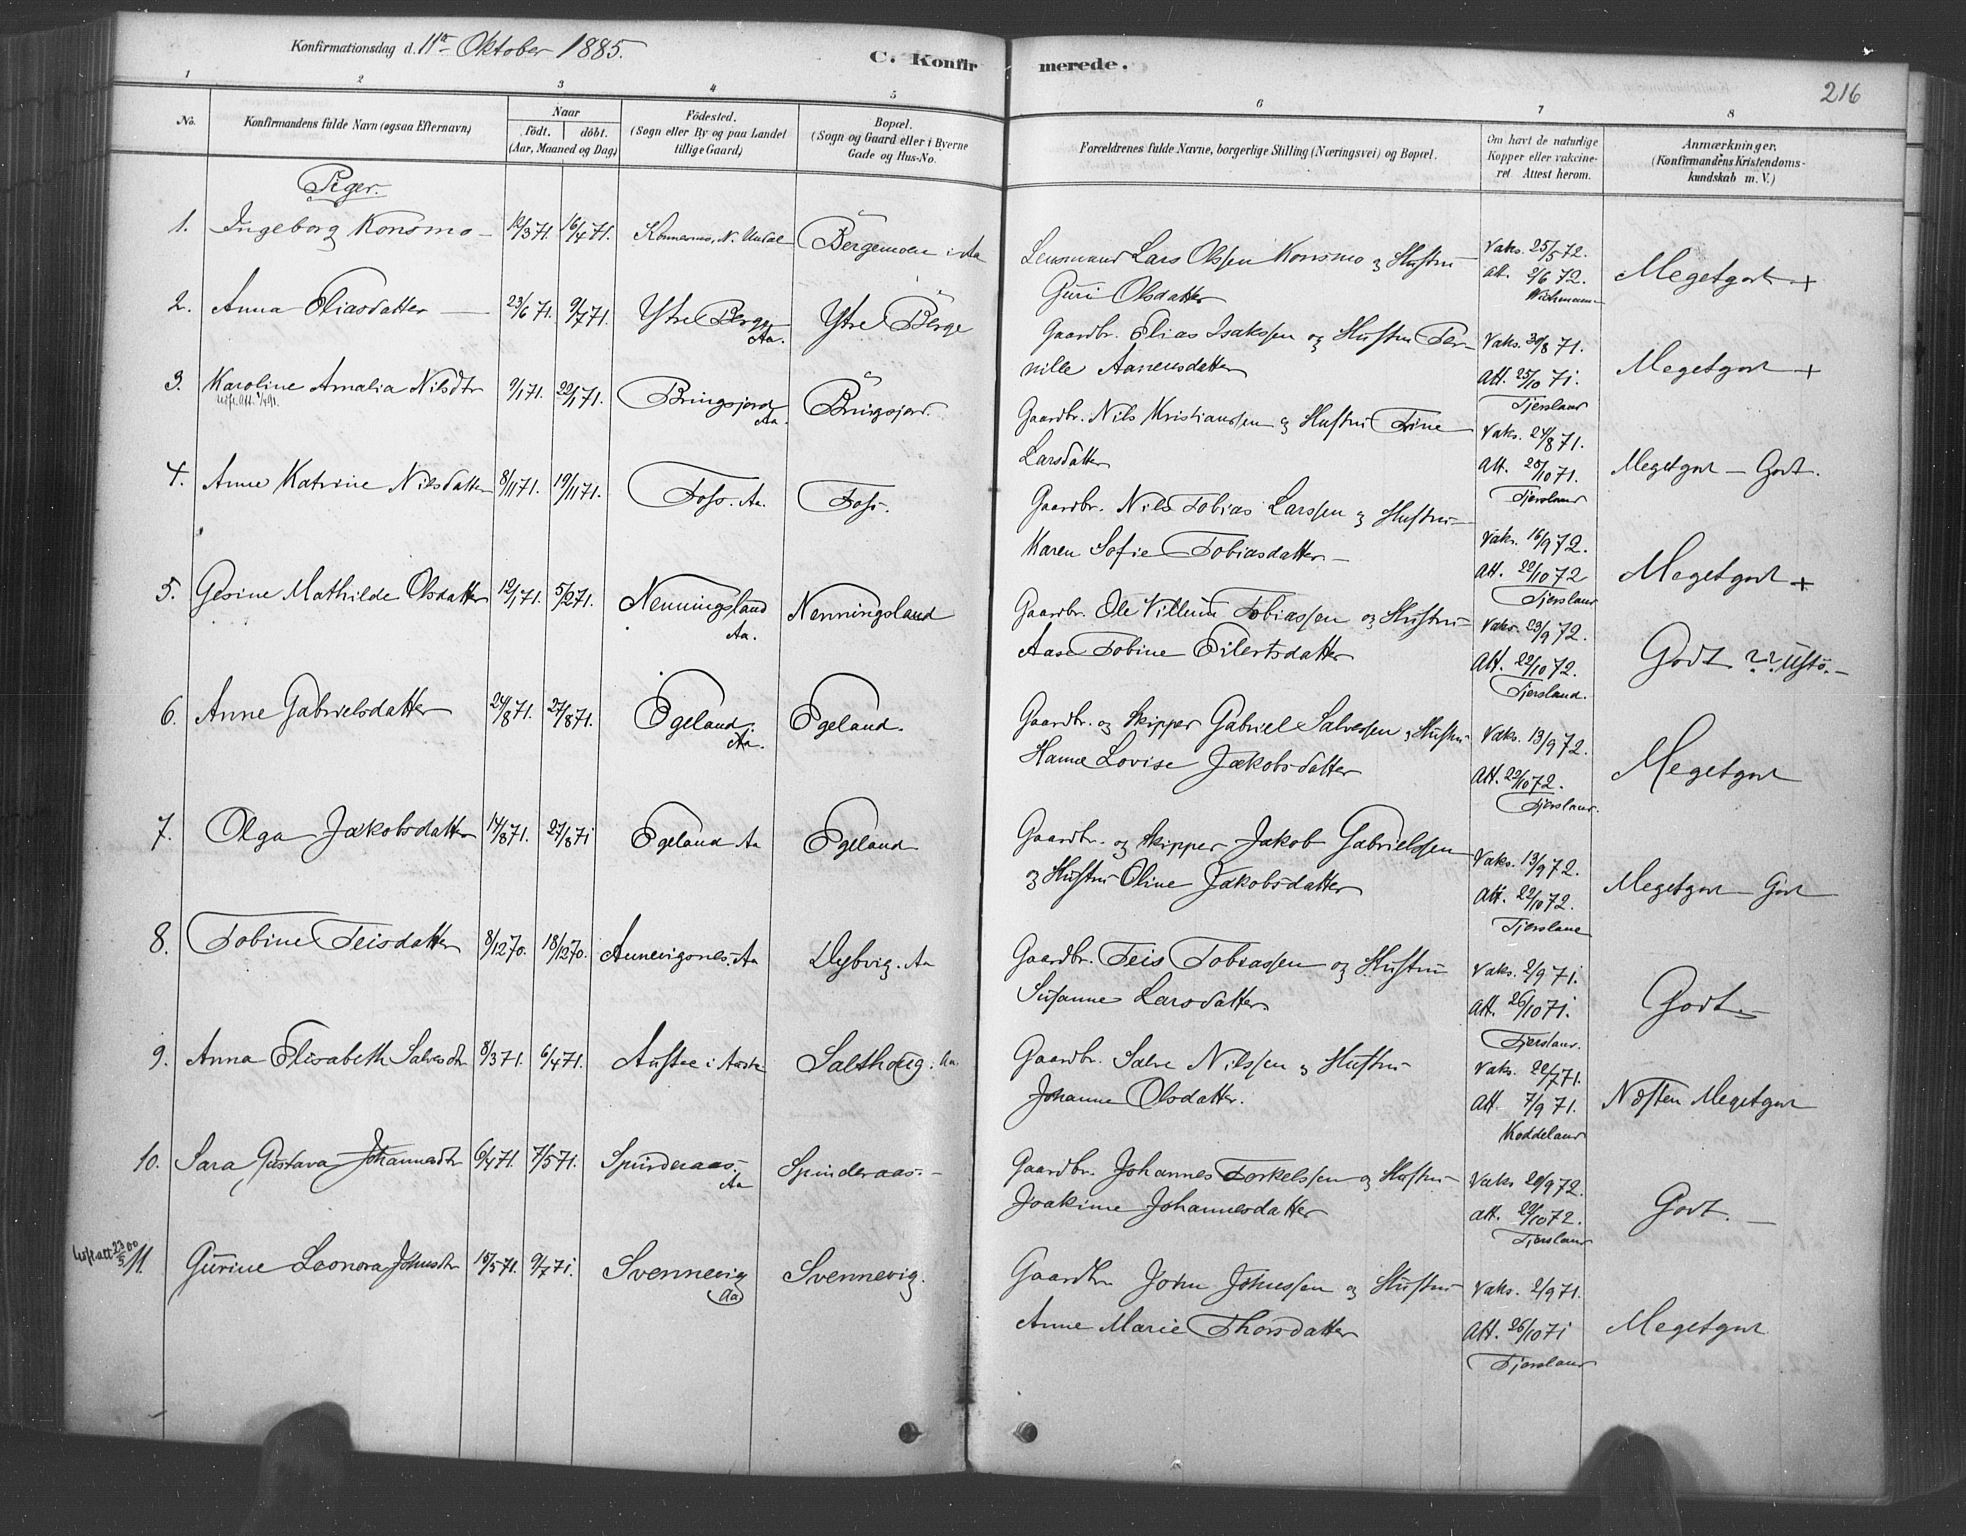 Konfirmationsdag d. 11te Oktober 1885.
C. Konfir merede.
216
1 2 3 4 5 6 7 8
No.
Konfirmandens fulde Navn (ogsaa Efternavn)
Naar
födt. döbt.
(Aar, Maaned og Dag)
Födested.
(Sogn eller By og paa Landet
tillige Gaard)
Bopæl.
(Sogn og Gaard eller i Byerne
Gade og Hus-No.
Forældrenes fulde Navne, borgerlige Stilling (Næringsvei) og Bopæl.
Om havt de naturlige
Kopper eller vakcine-
ret Attest herom.
Anmærkninger.
(Konfirmandens Kristendoms-
kundskab m. V.)
Piger.
1. Ingeborg Konsmo 12/3 71. 16/4 71. N. Undal Bergemoen i Aa
Lensmand Lars Olssen Konsmo og Hustru
Guri Olsdatter
Vaks. 25/5 72.
att. 2/6 72.
Megetgodt +
2. Anna Eliasdatter 23/6 71. 9/7 71. Ytre Berge Aa. Ytre Berge
Gaardbr. Elias Isakssen og Hustru Per-
nille Aanensdatter
Vaks. 30/8 71.
Att. 25/10 71.
Tjersland
Megetgodt +
3. Karoline Amalia Nilsdtr 9/1 71. 22/1 71. Bringsjord Aa. Bringsjord.
Gaardbr. Nils Kristianssen og Hustru Trine
Larsdatter
Vaks. 24/8 71.
Att. 25/10 71.
Tjersland
Megetgodt - Godt.
4. Anne Katrine Nilsdatter 8/11 71. 19/11 71. Foss. Aa. Foss.
Gaardbr. Nils Tobias Larssen og Hustru
Karen Sofie Tobiasdatter
Vaks. 16/9 72.
Att. 22/10 72
Tjersland
Megetgodt +
5. Gesine Mathilde Olsdatter 12/1 71. 5/2 71. Nenningsland Aa. Nenningsland
Gaardbr. Ole Villum Tobiassen og Hustru
Aase Tobine Eilertsdatter
Vaks. 23/9 72.
Att. 22/10 72.
Tjersland.
Godt
6. Anne Gabrielsdatter 24/8 71. 27/8 71. Egeland. Aa. Egeland.
Gaardbr. og Skipper Gabriel Salvessen og Hustru
Hanne Lovise Jakobsdatter
Vaks. 13/9 72.
Att. 22/10 72.
Tjersland.
Megetgodt
7. Olga Jakobsdatter 14/8 71. 27/8 71 Egeland Aa Egeland
Gaardbr. og Skipper Jakob Gabrielssen
og Hustru Oline Jakobsdatter
Vaks. 13/9 72.
Att. 22/10 72.
Tjersland
Megetgodt - Godt
8. Tobine Teisdatter 8/12 70. 18/12 70. Annevigsnes. Aa Dybvig. Aa
Gaardbr. Teis Tobiassen og Hustru
Susanne Larsdatter
Vaks. 2/9 71.
Att. 26/10 71.
Tjersland.
Godt.
9. Anna Elisabeth Salvesdtr 8/3 71. 6/4 71. Salthoug. Aa.
Gaardbr. Salve Nilssen og Hustru
Johanne Olsdatter.
Vaks. 22/7 71.
Att 7/9 71.
Koddeland
Næsten Megetgodt
10. Sara Gustava Johannesdtr 6/4 71. 7/5 71. Spinderaas. Aa Spinderaas.
Gaardbr. Johannes Torkelssen og Hustru
Joakime Johannesdatter
Vaks 20/9 72.
att. 22/10 72.
Tjersland
Godt.
23/5 00
11. Gurine Leonora Johnsdtr 15/5 71. 9/7 71. Svennevig Aa Svennevig.
Gaardbr John Johnssen og Hustru
Anne Marie Thorsdatter
Vaks. 2/9 71.
Att. 26/10 71
Tjersland
Megetgodt